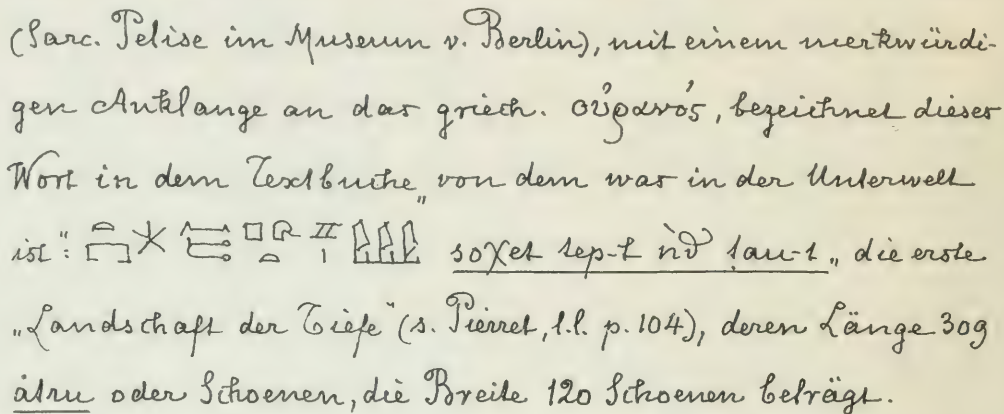 (Sarc. Pelise im Museum v. Berlin), mit einem merkwürdi-
gen Anklange an das griech. οὐρανός, bezeichnet dieses
Wort in dem Textbuche „von dem was in der Unterwelt
ist": soχet tep-t tau-t „die erste
„Landschaft der Tiefe" (s. Pierret, l.l. p. 104), deren Länge 309
átru oder Schoenen, die Breite 120 Schoenen beträgt.